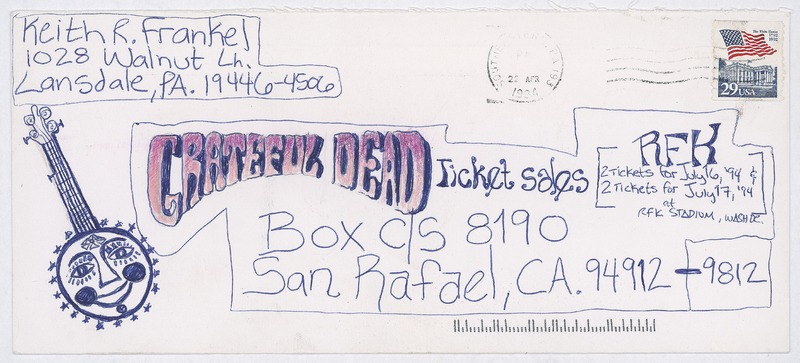 Keith R. Frankel
1028 Walnut Ln.
Lansdale, PA. 19446-4506
22 APR
1994
The White House
1792 1992
29 USA
GRATEFUL DEAD Ticket sales
RFK
2 Tickets for July 16, '94 &
2 Tickets for July 17, '94
at
RFK STADIUM, WASH DC.
Box C/S 8190
San Rafael, CA. 94912-9812